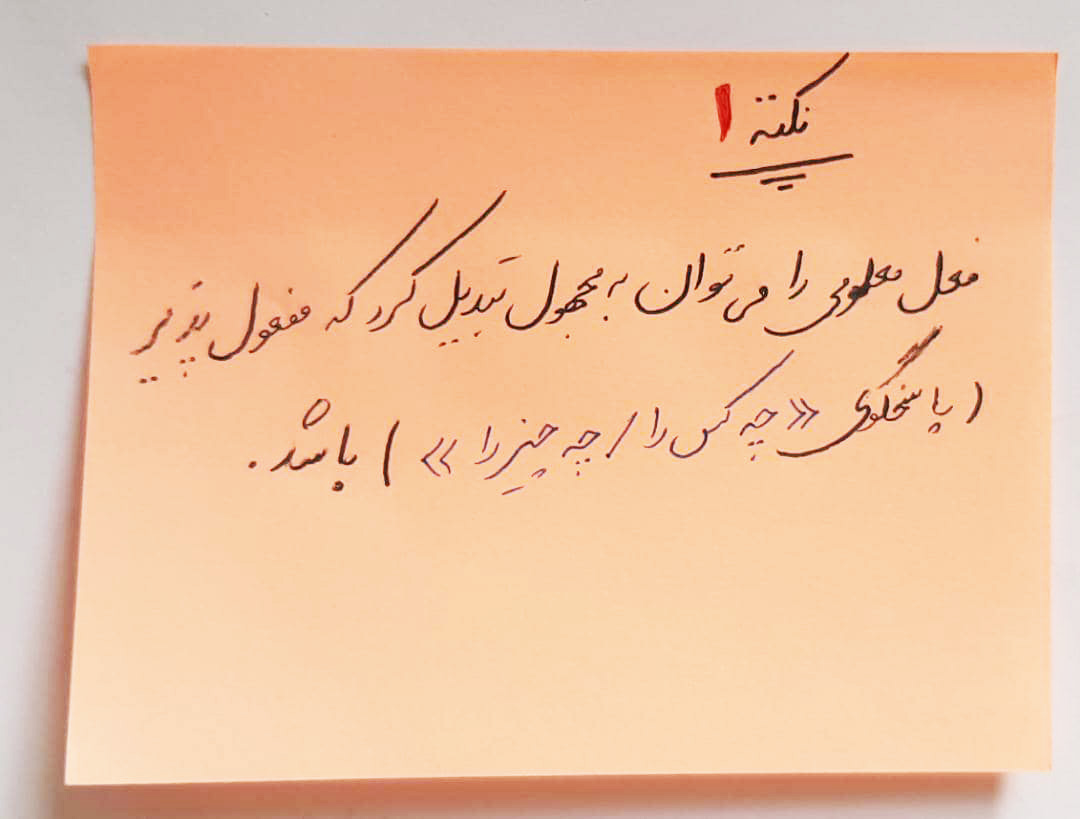 نکته ۱
فعل معلومی را می توان به مجهول تبدیل کرد که مفعول پذیر
(پاسخگوی «چه کسی را / چه چیز را») باشد.